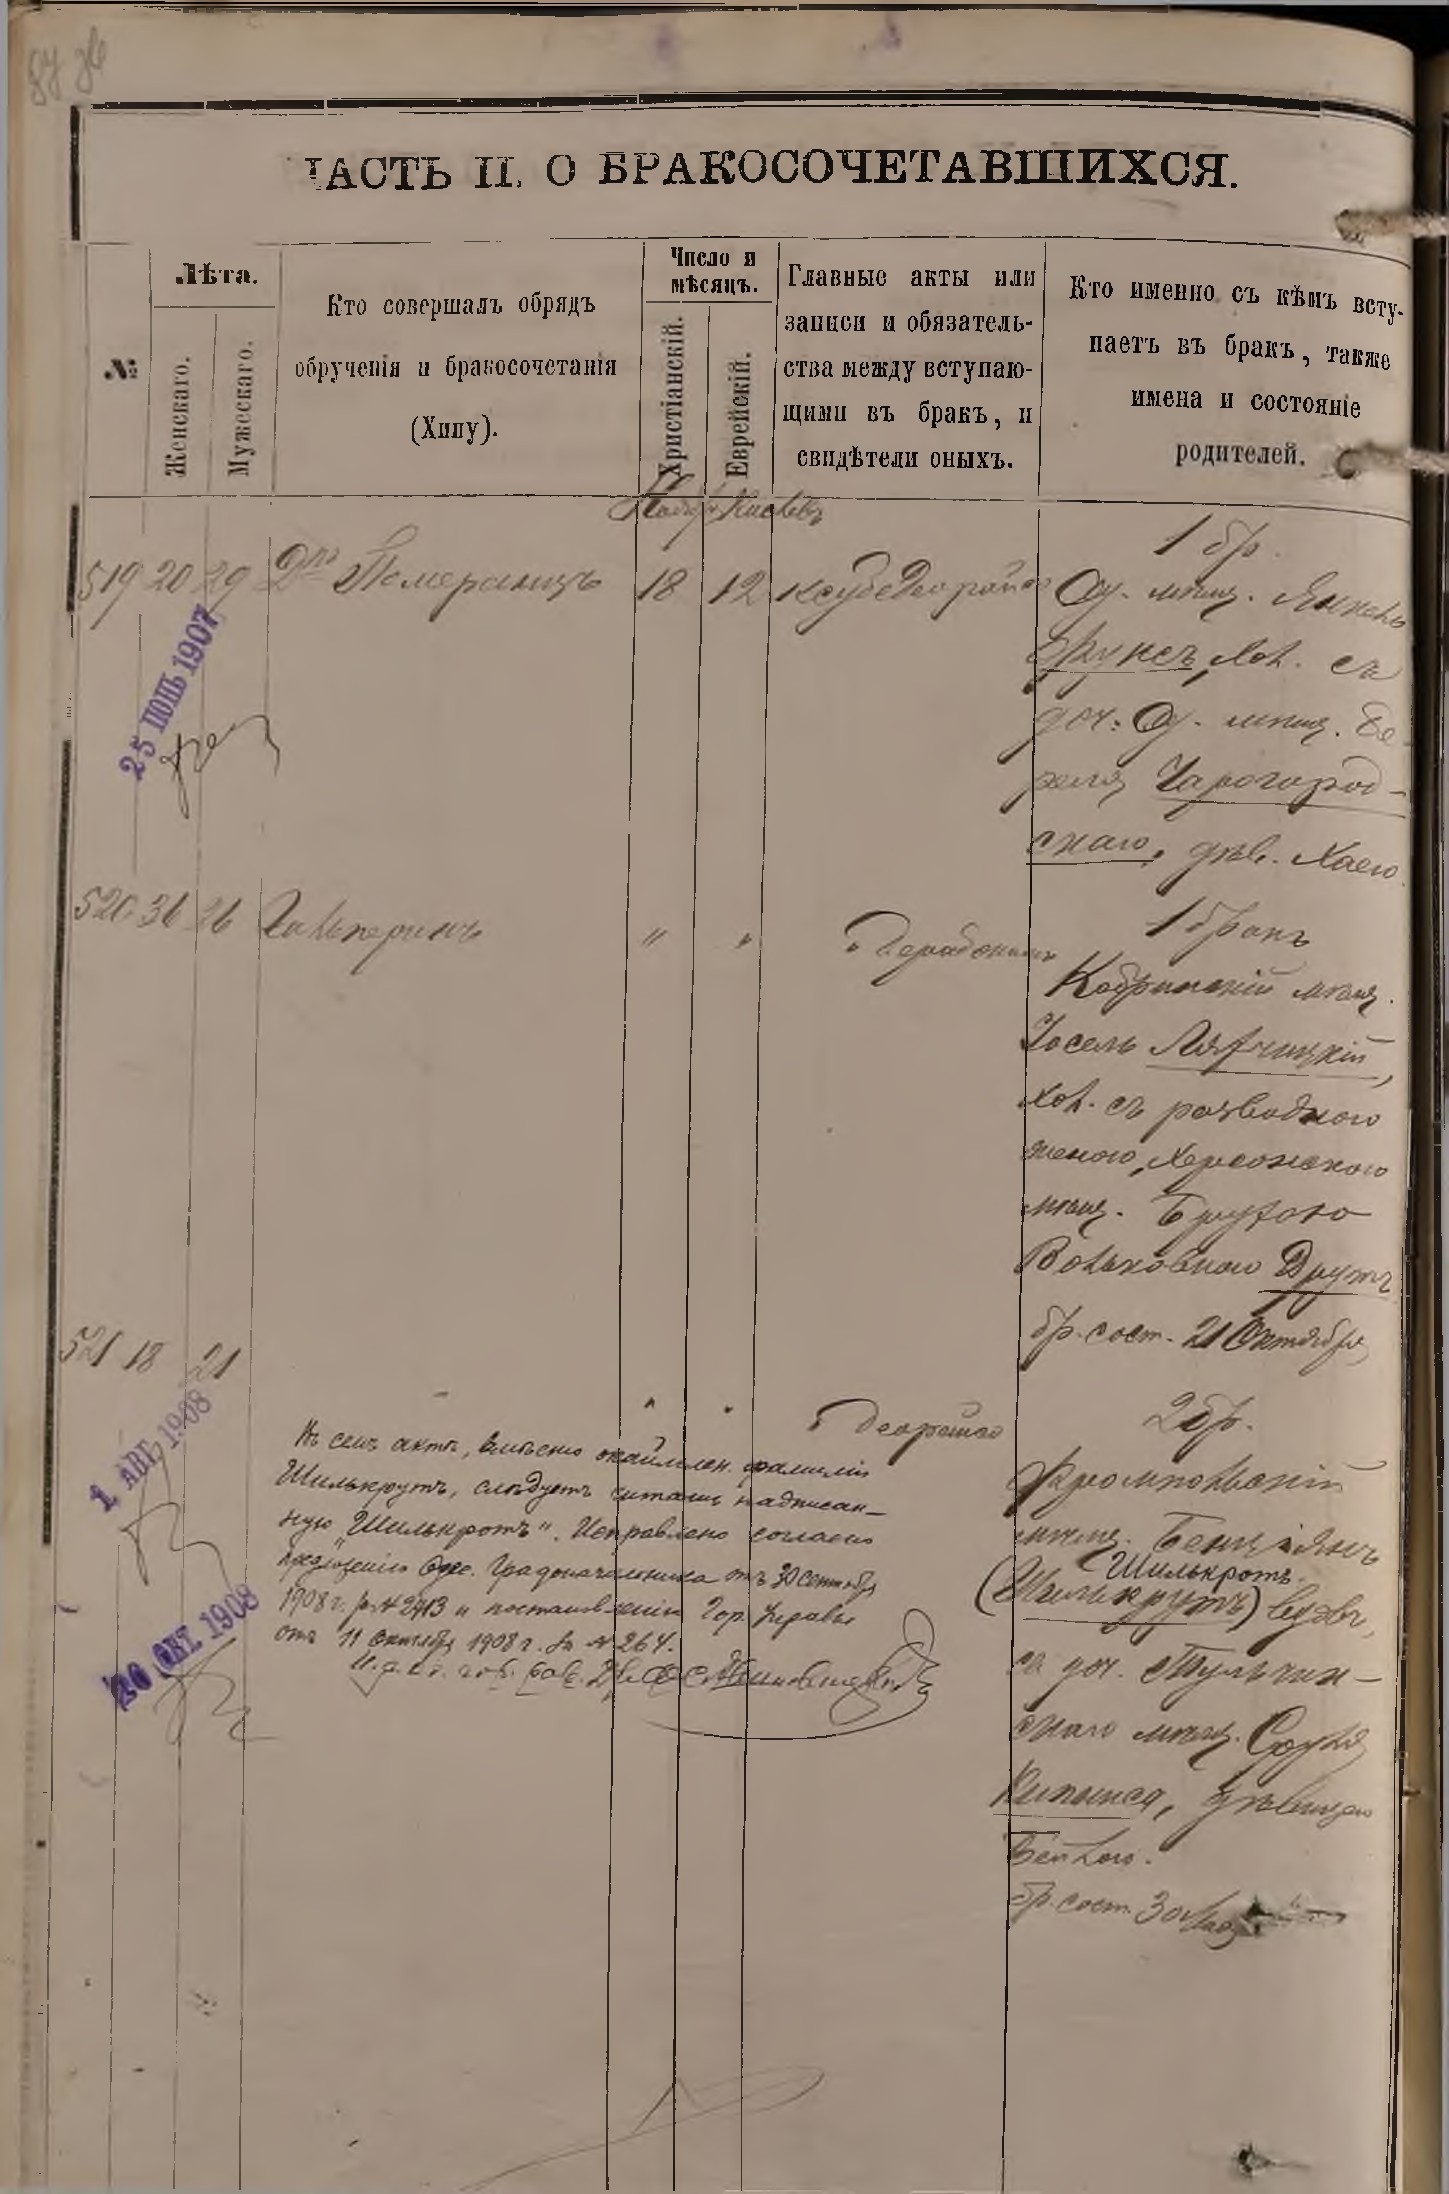 ЧАСТЬ II. О БРАКОСОЧЕТАВШИХСЯ.
№
Лѣта.
Женскаго.
Мужескаго.
Кто совершалъ обрядъ
обрученія и бракосочетанія
(Хипу).
Число и
мѣсяцъ.
Христіанскій.
Еврейскій.
Главные акты или
записи и обязатель-
ства между вступаю-
щими въ бракъ, и
свидѣтели оныхъ.
Кто именно съ кѣмъ всту-
паетъ въ бракъ, также
имена и состояніе
родителей.
Кислевъ
1 бр.
519 20 29 Померанцъ 18 12
Од. мѣщ. Янкель
Фуксъ, хол. съ
доч. Од. мѣщ. Бе-
реля Чарогород-
скаго, дѣв. Хаею.
25 ІЮНЬ 1907
520 36 26 Гальперинъ " "
1 бракъ
Кобринскій мѣщ.
Іосель Лятчицкій,
хол. съ разводною
женою, Херсонскою
мѣщ. Брухою
Вольковною Друтъ
бр. сост. 21 Октября
521 18 21 " "
2 бр.
мѣщ. Бенціянъ
Шилькротъ.
(Шилькрутъ) вдовъ,
съ доч. Тульчин-
скаго мѣщ. Сруля
Кипниса, дѣвицею
Бейлою.
бр. сост. 30
1 АПГ 1908
20 ОКТ. 1908
Въ семъ актѣ, вмѣсто окаймлен. фамиліи
Шилькрутъ, слѣдуетъ читать надписан-
ную "Шилькротъ". Исправлено согласно
предложенію Одес. Градоначальника отъ 30 сентября
1908 г. за № 2413 и постановленію Гор. Управы
отъ 11 Октября 1908 г. за № 264.